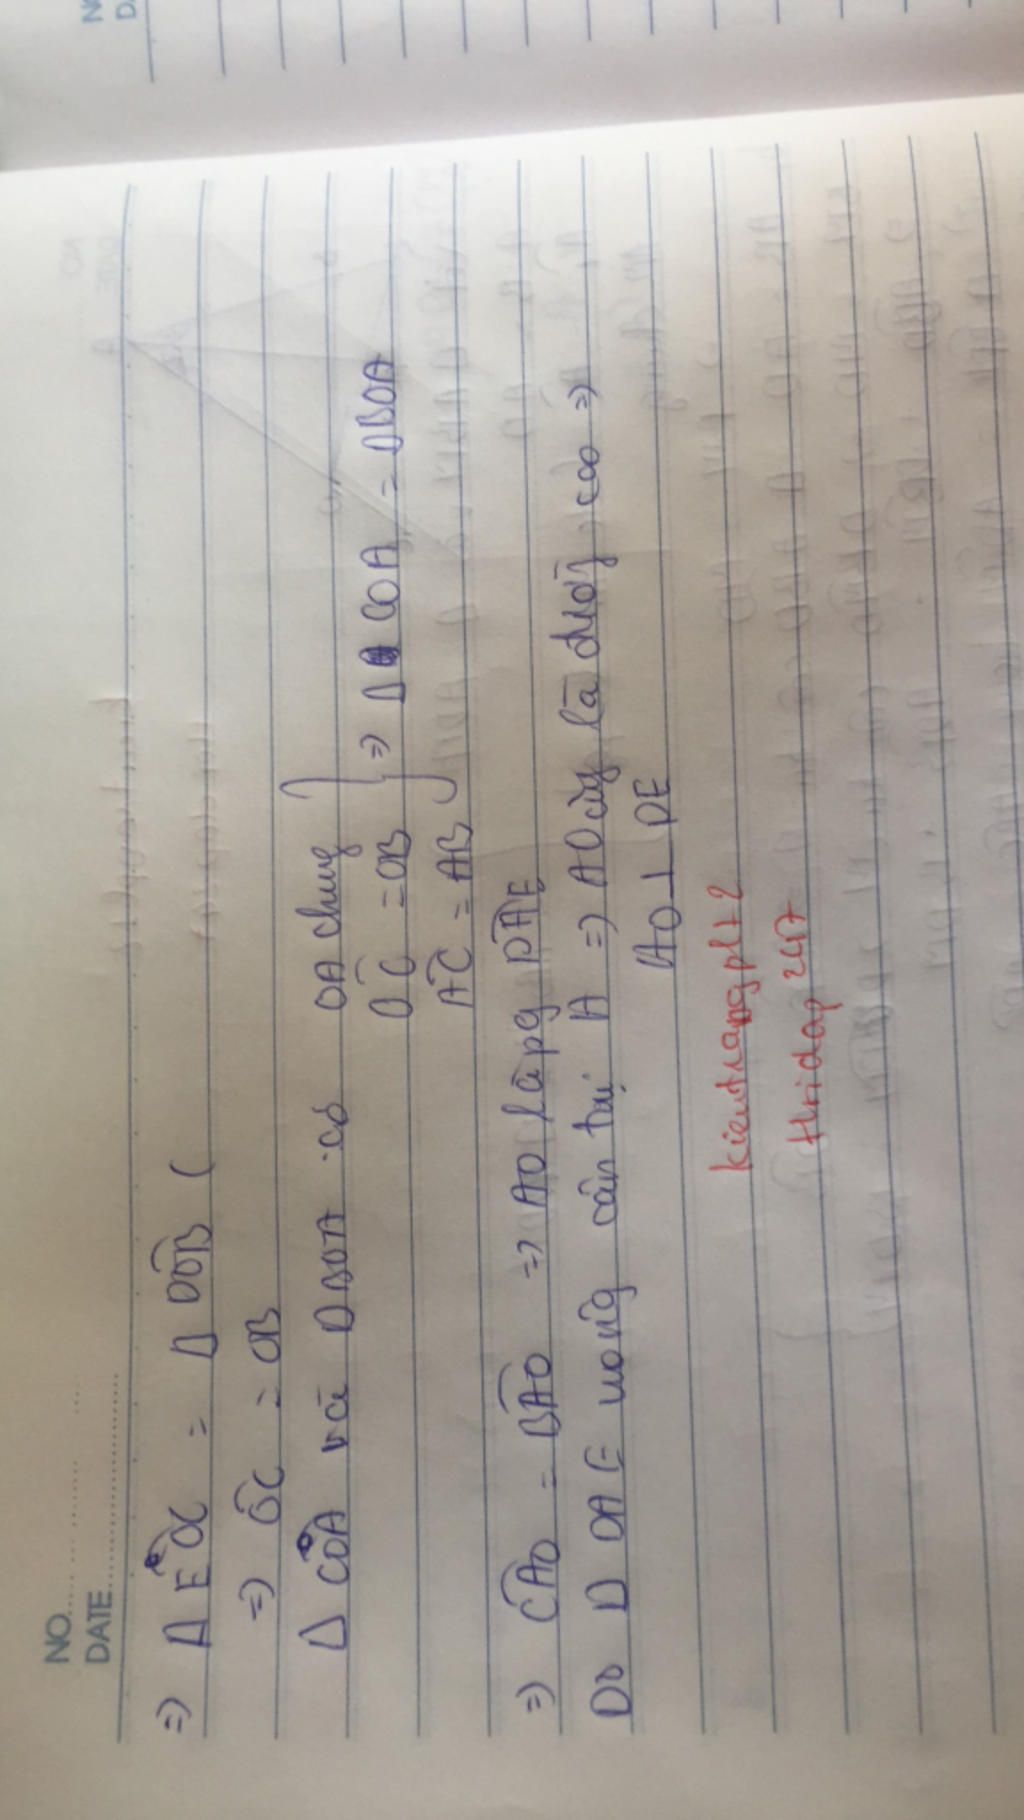 NO.
DATE
⇒ Δ EOC = Δ DOB (
⇒ OC = OB
Δ COA và Δ BOA có OA chung
OC = OB
AC = AB
} ⇒ Δ COA = Δ BOA
⇒ CAO = BAO ⇒ AO là pg DAE
Do Δ DAE cân tại A ⇒ AO cũng là đường cao ⇒
AO ⊥ DE
kieutrangplt2
thriday 247